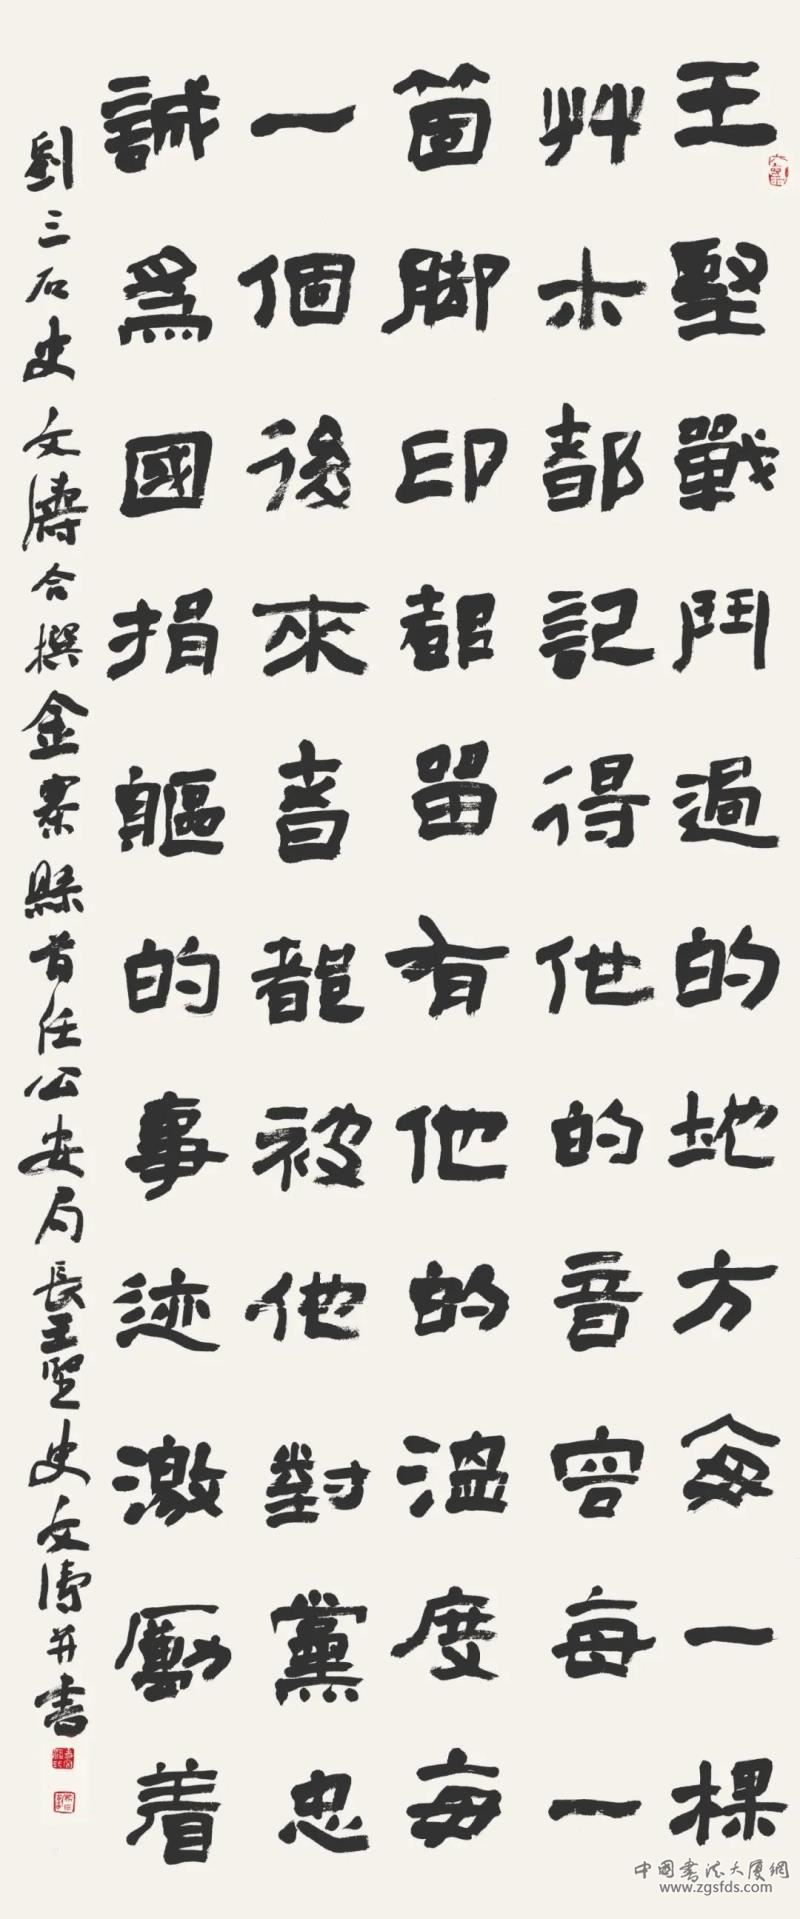 王堅戰鬥過的地方每一棵
艸木都記得他的音容每一
箇脚印都留有他的溫度每
一個後來者都被他對黨忠
誠爲國捐軀的事迹激勵着
劉三石史文濤合撰金寨縣首任公安局長王堅史文濤并書
中国書法大厦網
www.zgsfds.com